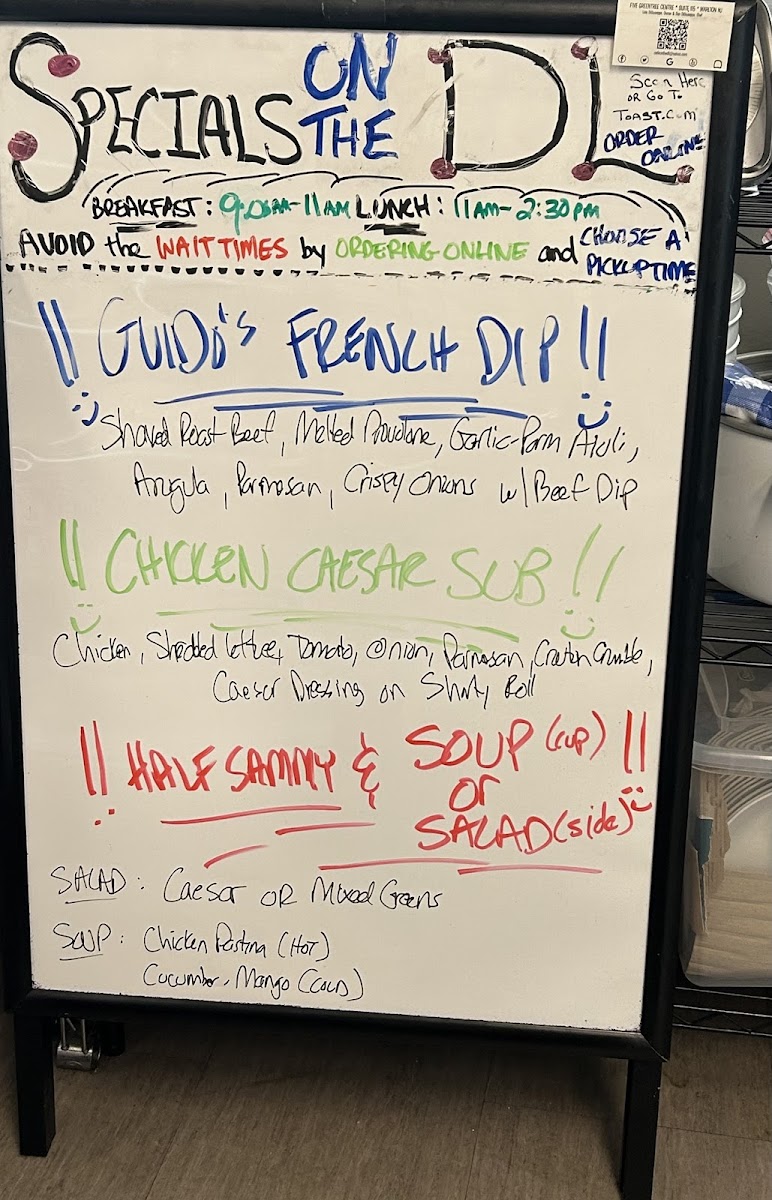 FIVE GREENTREE CENTRE * SUITE 115 * MARLTON NJ
SPECIALS ON THE DL
Scan Here
or Go To
Toast.com
ORDER
ONLINE
BREAKFAST: 9:00AM-11AM LUNCH: 11AM-2:30PM
AVOID the WAIT TIMES by ORDERING ONLINE and CHOOSE A
PICKUP TIME
!! GUIDO'S FRENCH DIP !!
Shaved Roast Beef, Melted Provolone, Garlic-Parm Aioli,
Arugula, Parmesan, Crispy Onions w/ Beef Dip
!! CHICKEN CAESAR SUB !!
Chicken, Shredded lettuce, Tomato, Onion, Parmesan, Crouton Crumble,
Caesar Dressing on Roll
!! HALF SAMMY & SOUP (cup) !!
or
SALAD (side)
SALAD: Caesar OR Mixed Greens
SOUP: Chicken Pastina (HOT)
Cucumber-Mango (COLD)